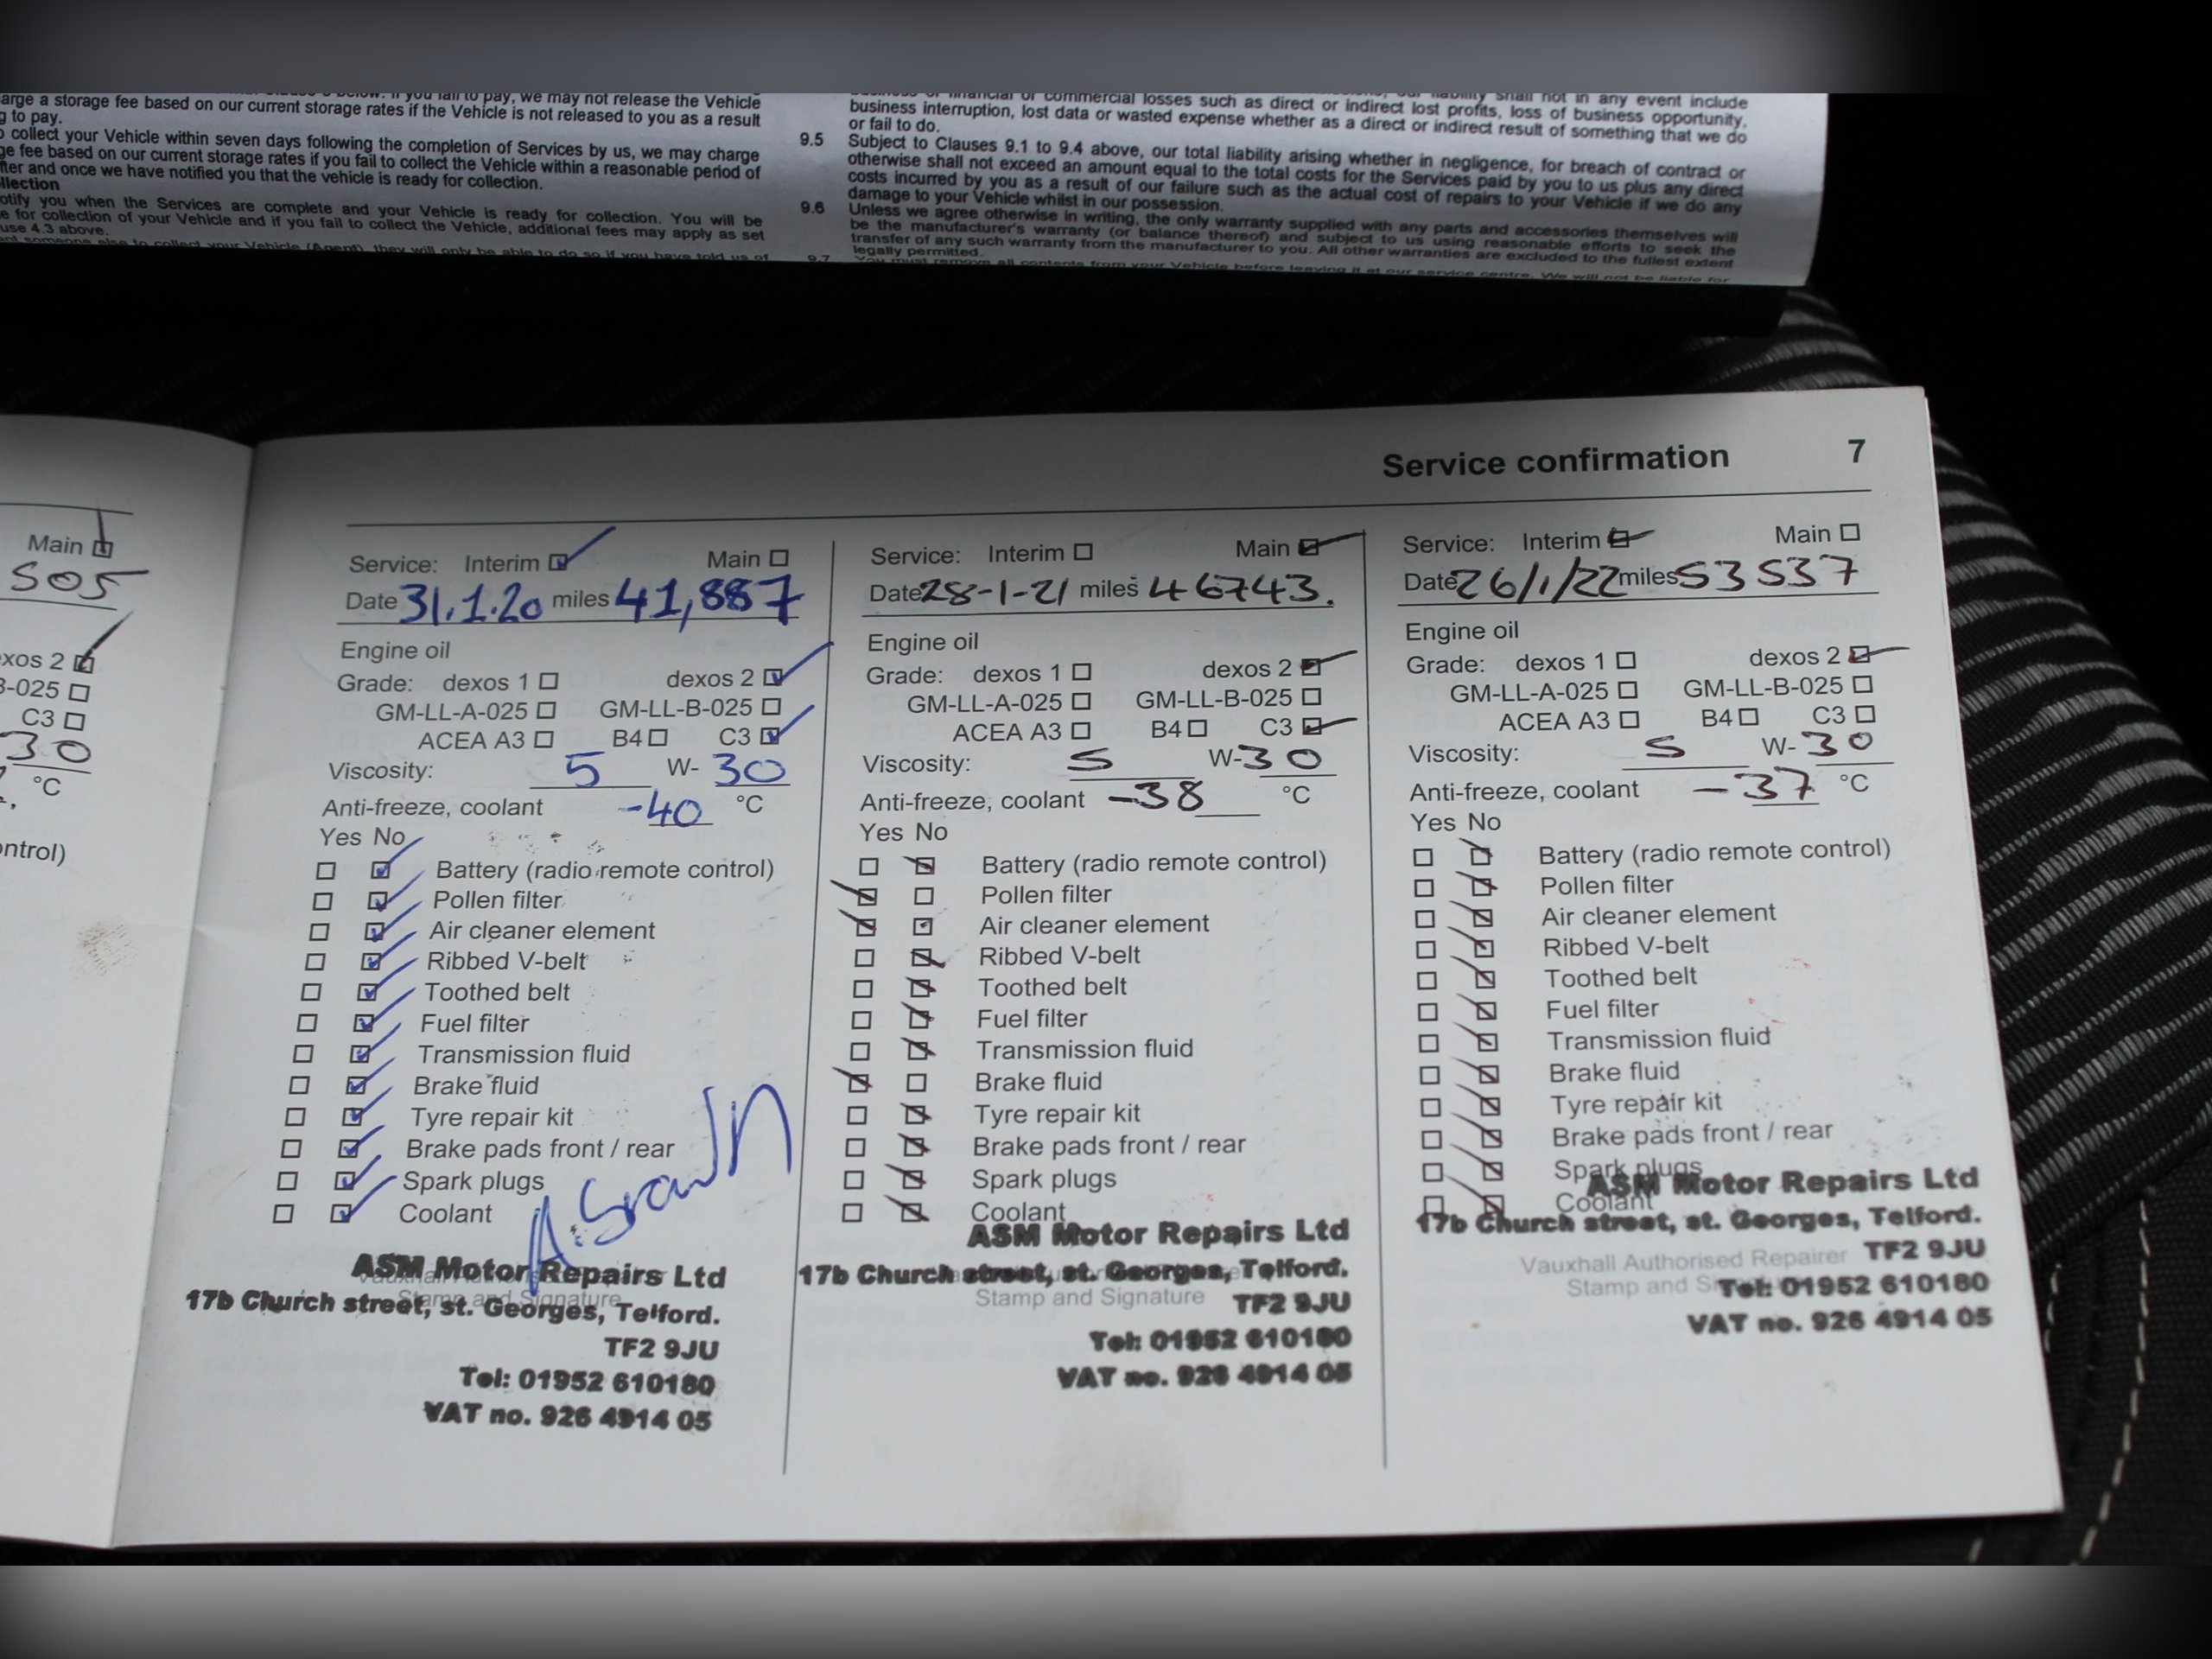 arge a storage fee based on our current storage rates if the Vehicle is not released to you as a result
g to pay.
collect your Vehicle within seven days following the completion of Services by us, we may charge
ge fee based on our current storage rates if you fail to collect the Vehicle within a reasonable period of
fter and once we have notified you that the vehicle is ready for collection.
llection
otify you when the Services are complete and your Vehicle is ready for collection. You will be
e for collection of your Vehicle and if you fail to collect the Vehicle, additional fees may apply as set
use 4.3 above.
someone else to collect your Vehicle (Agent), they will only be able to do so if you have told us of
business interruption, lost data or wasted expense whether as a direct or indirect result of something that we do
or fail to do.
9.5 Subject to Clauses 9.1 to 9.4 above, our total liability arising whether in negligence, for breach of contract or
otherwise shall not exceed an amount equal to the total costs for the Services paid by you to us plus any direct
costs incurred by you as a result of our failure such as the actual cost of repairs to your Vehicle if we do any
damage to your Vehicle whilst in our possession.
9.6 Unless we agree otherwise in writing, the only warranty supplied with any parts and accessories themselves will
be the manufacturer's warranty (or balance thereof) and subject to us using reasonable efforts to seek the
transfer of any such warranty from the manufacturer to you. All other warranties are excluded to the fullest extent
legally permitted.
9.7 You must remove all contents from your Vehicle before leaving it at our service centre. We will not be liable for
Main
505
xos 2
B-025
C3
30
°C
ontrol)
Service confirmation 7
Service: Interim Main
Date 31.1.20 miles 41,887
Engine oil
Grade: dexos 1 dexos 2
GM-LL-A-025 GM-LL-B-025
ACEA A3 B4 C3
Viscosity: 5 W- 30
Anti-freeze, coolant -40 °C
Yes No
Battery (radio remote control)
Pollen filter
Air cleaner element
Ribbed V-belt
Toothed belt
Fuel filter
Transmission fluid
Brake fluid
Tyre repair kit
Brake pads front / rear
Spark plugs
Coolant
ASM Motor Repairs Ltd
Stamp and Signature
17b Church street, st. Georges, Telford.
TF2 9JU
Tel: 01952 610180
VAT no. 926 4914 05
Service: Interim Main
Date 28-1-21 miles 46743.
Engine oil
Grade: dexos 1 dexos 2
GM-LL-A-025 GM-LL-B-025
ACEA A3 B4 C3
Viscosity: 5 W-30
Anti-freeze, coolant -38 °C
Yes No
Battery (radio remote control)
Pollen filter
Air cleaner element
Ribbed V-belt
Toothed belt
Fuel filter
Transmission fluid
Brake fluid
Tyre repair kit
Brake pads front / rear
Spark plugs
Coolant
ASM Motor Repairs Ltd
17b Church street, st. Georges, Telford.
Stamp and Signature
TF2 9JU
Tel: 01952 610180
VAT no. 926 4914 05
Service: Interim Main
Date 26/1/22 miles 53537
Engine oil
Grade: dexos 1 dexos 2
GM-LL-A-025 GM-LL-B-025
ACEA A3 B4 C3
Viscosity: 5 W-30
Anti-freeze, coolant -37 °C
Yes No
Battery (radio remote control)
Pollen filter
Air cleaner element
Ribbed V-belt
Toothed belt
Fuel filter
Transmission fluid
Brake fluid
Tyre repair kit
Brake pads front / rear
Spark plugs
ASM Motor Repairs Ltd
Coolant
17b Church street, st. Georges, Telford.
Vauxhall Authorised Repairer
TF2 9JU
Stamp and
Tel: 01952 610180
VAT no. 926 4914 05